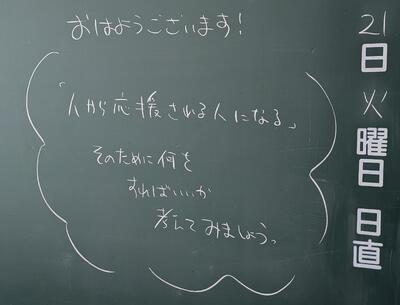 おはようございます!
「人から応援される人になる」
そのために何を
すればいいか
考えてみましょう。
21日火曜日 日直